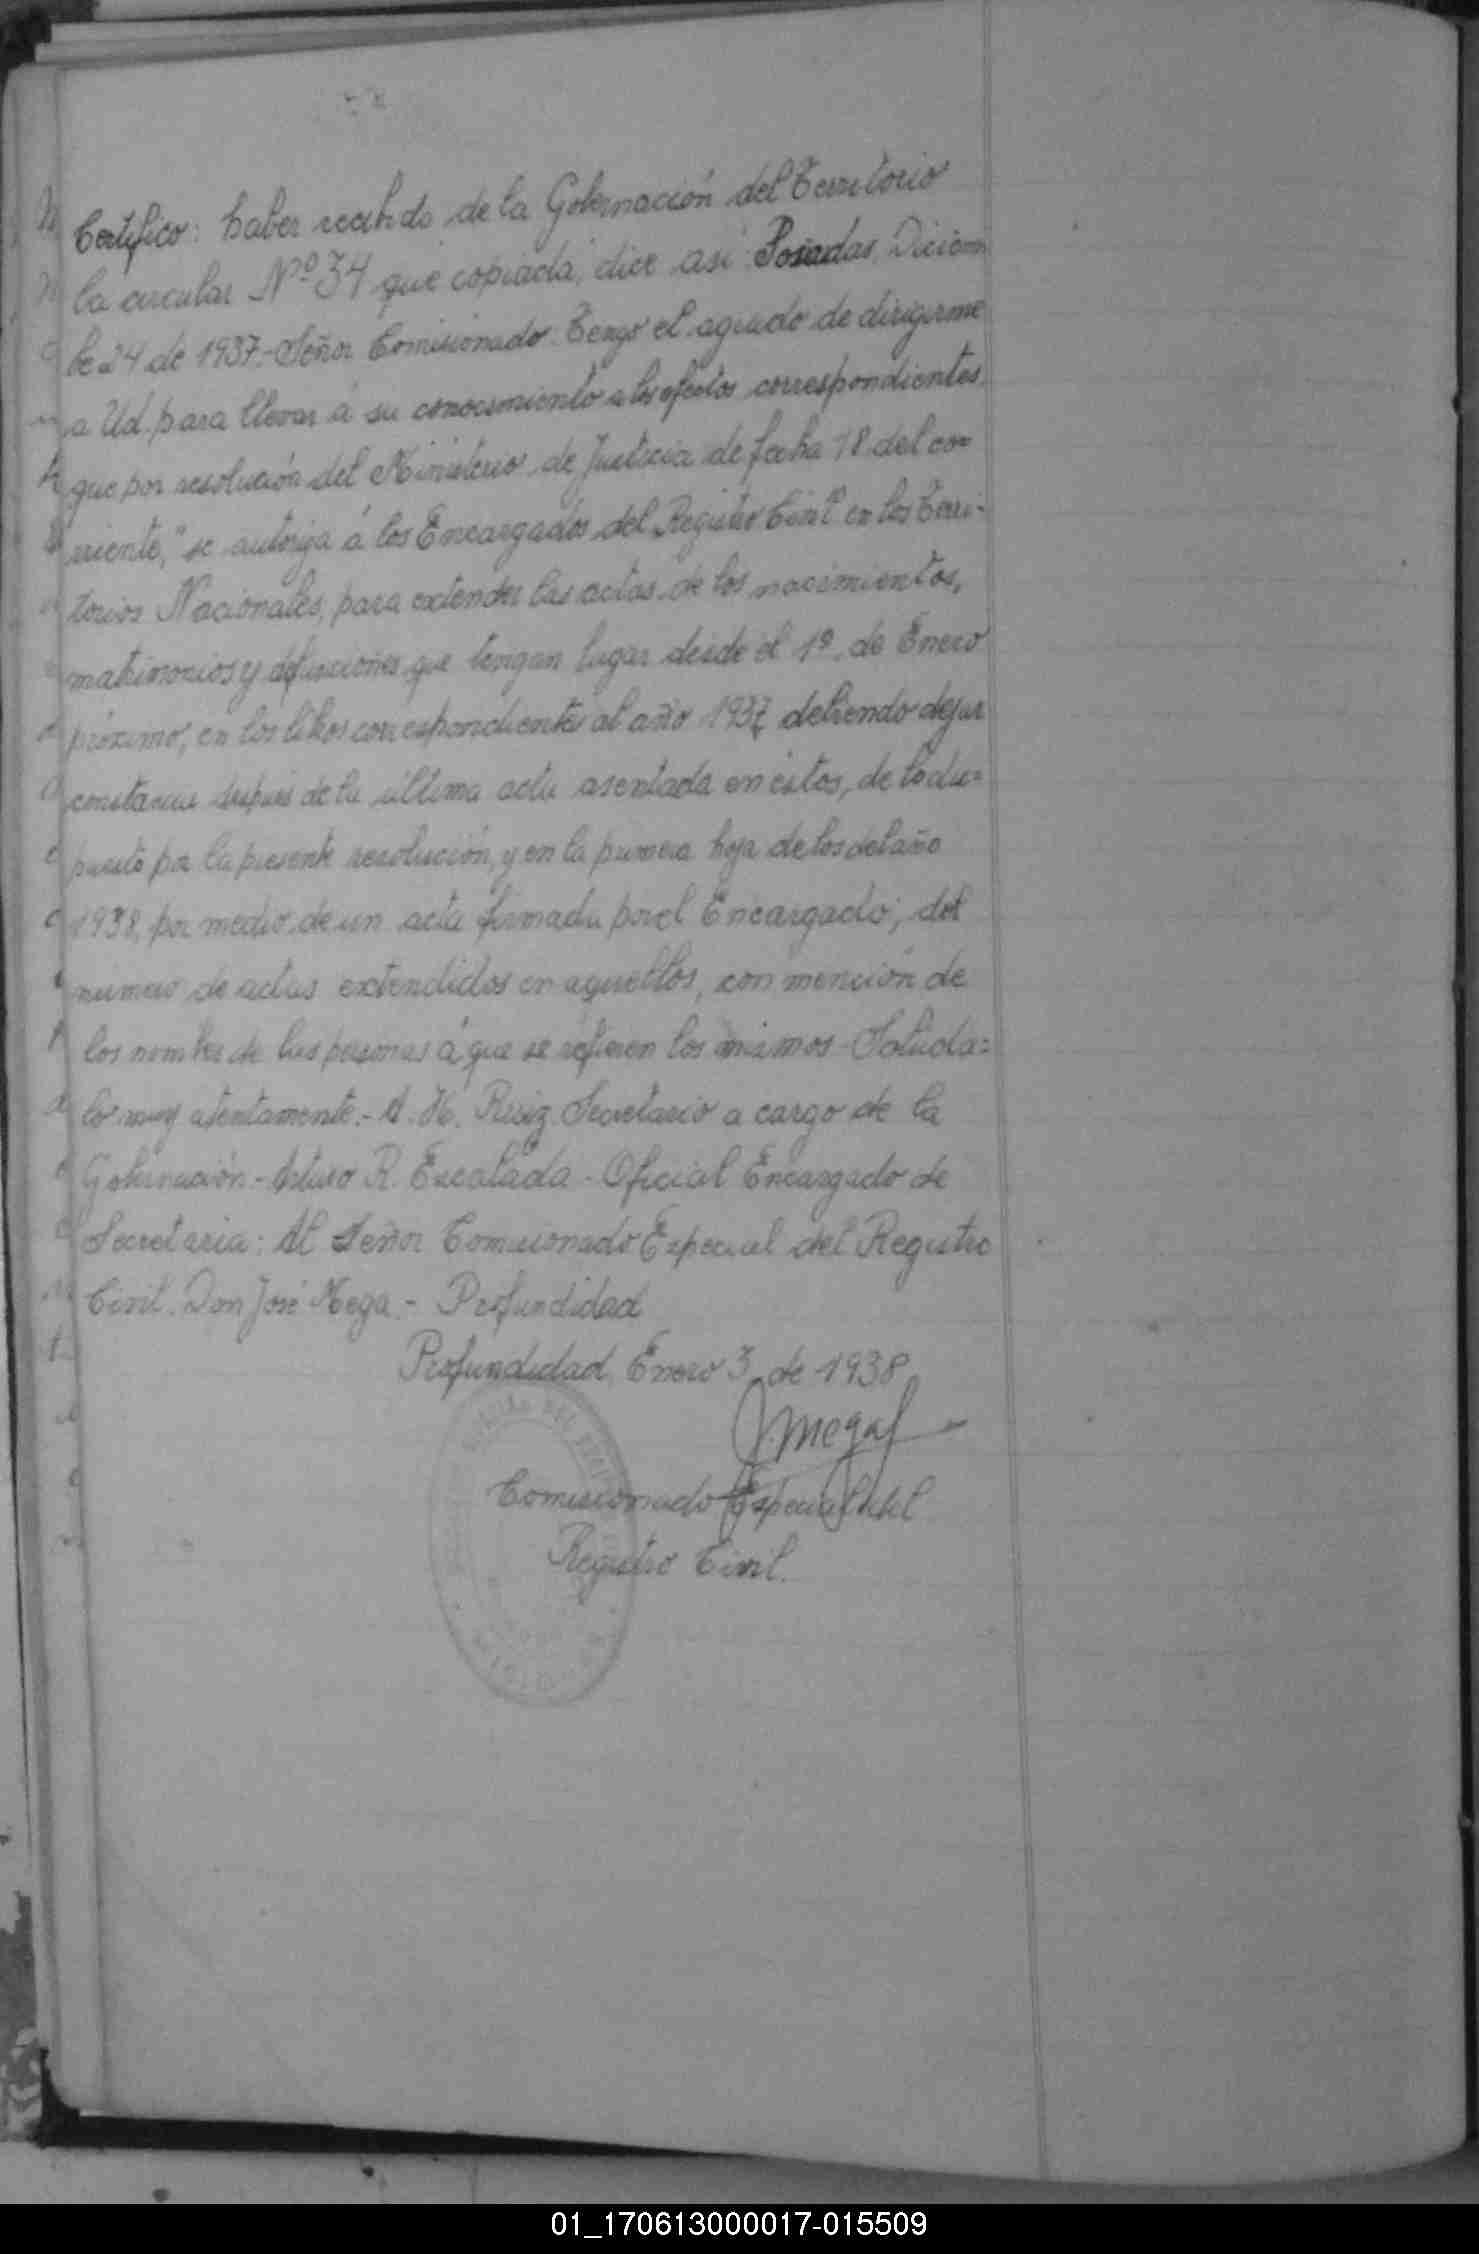 Certifico: haber recibido de la Gobernación del Territorio
la circular Nº 34 que copiada, dice así: Posadas, Diciem
be 24 de 1937.- Señor Comisionado. Tengo el agrado de dirigirme
a Ud. para llevar á su conocimiento a los efectos correspondientes,
que por resolución del Ministerio de Justicia de fecha 18 del co=
rriente, "se autoriza á los Encargados del Registro Civil en los Terri-
torios Nacionales, para extender las actas de los nacimientos,
matrimonios y defunciones que tengan lugar desde el 1º de Enero
próximo, en los libros correspondientes al año 1937, debiendo dejar
constancia después de la última acta asentada en éstos, de lo dis=
puesto por la presente resolución, y en la primera hoja de los del año
1938, por medio de un acta firmada por el Encargado; del
número de actas extendidos en aquellos, con mención de
los nombres de las personas á que se refieren los mismos - Saluda=
lo muy atentamente.- A. H. Ruiz Secretario a cargo de la
Gobernación.- Arturo R. Escalada - Oficial Encargado de
Secretaria: Al Señor Comisionado Especial del Registro
Civil. Don José Mega.- Profundidad
Profundidad, Enero 3 de 1938
J. Mega
Comisionado Especial del
Registro Civil.
01_170613000017-015509